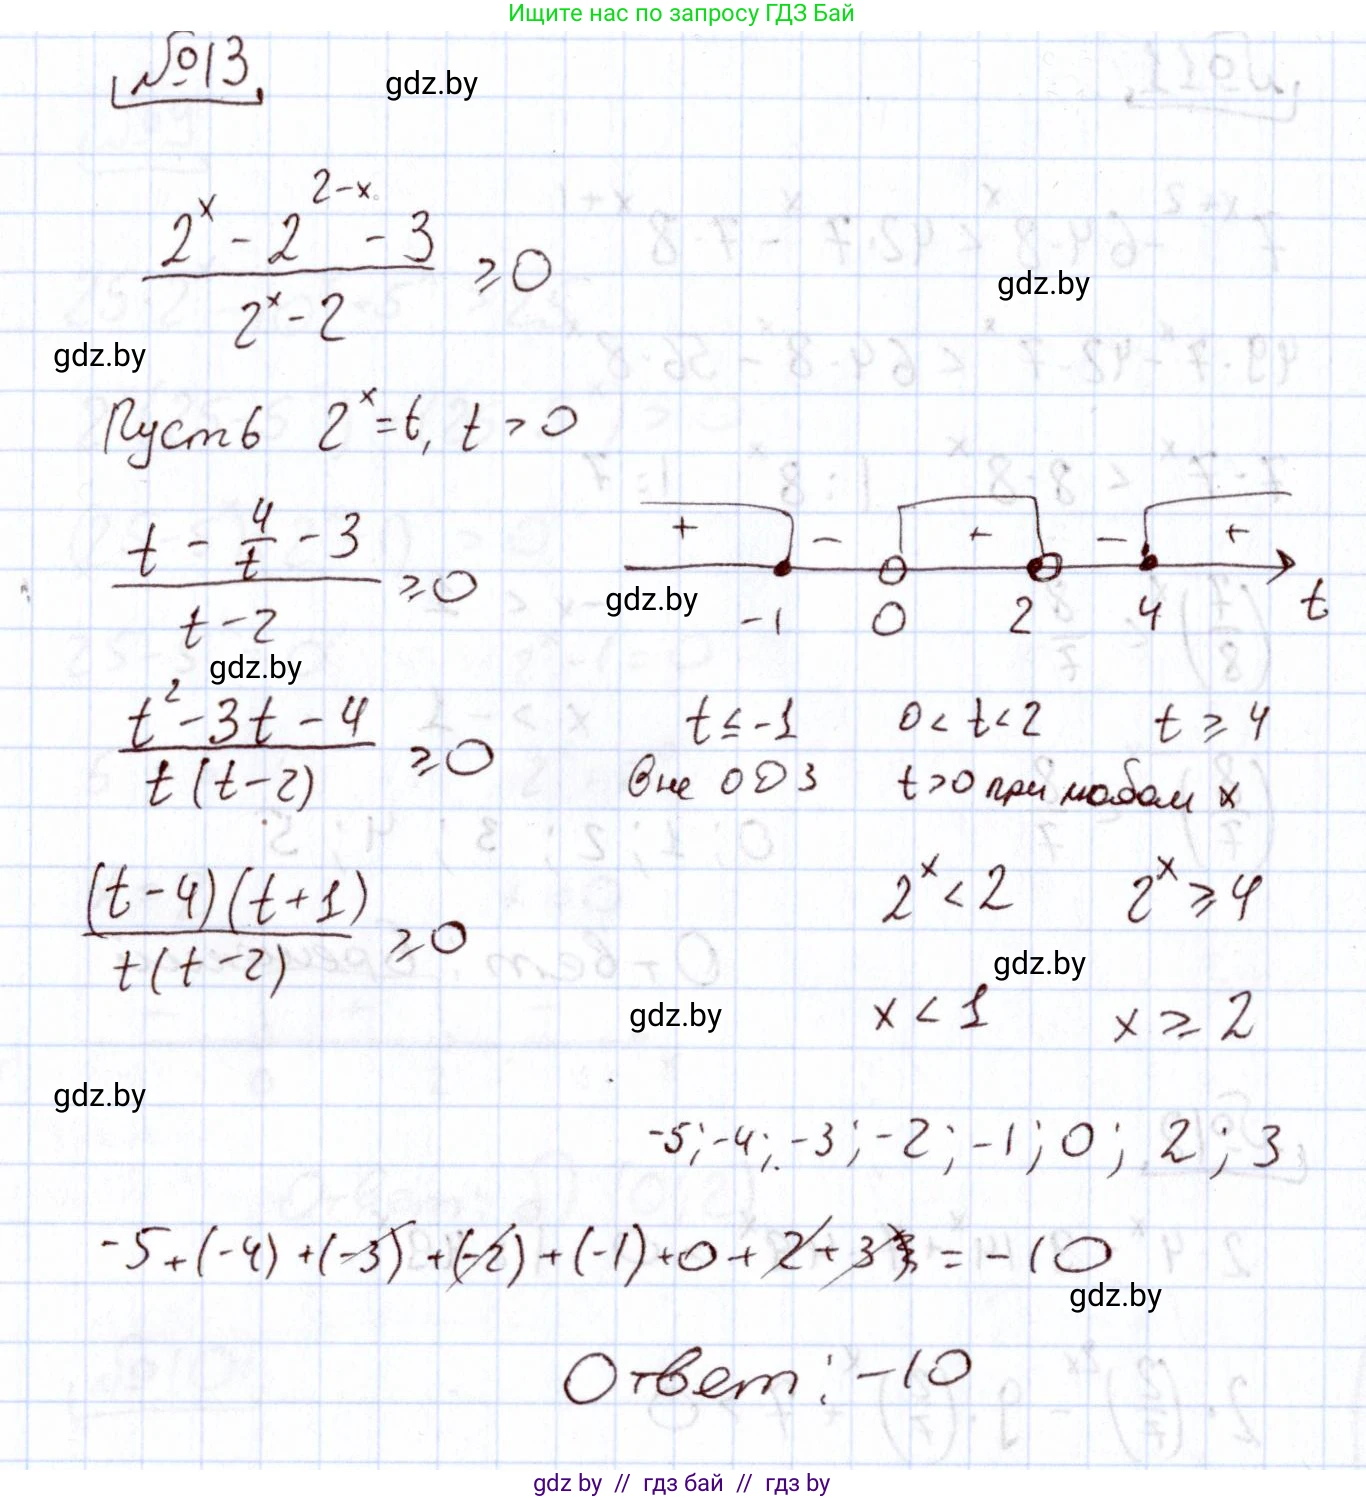 Ищите нас по запросу ГДЗ Бай
№13
gdz.by
(2^x - 2^(2-x) - 3) / (2^x - 2) ≥ 0
gdz.by
gdz.by
Пусть 2^x = t, t > 0
(t - 4/t - 3) / (t - 2) ≥ 0
+ - + - +
gdz.by
-1 0 2 4 t
gdz.by
(t^2 - 3t - 4) / (t(t-2)) ≥ 0
t ≤ -1 0 < t < 2 t ≥ 4
вне ОДЗ t > 0 при любом x
((t-4)(t+1)) / (t(t-2)) ≥ 0
2^x < 2 2^x ≥ 4
gdz.by
gdz.by
x < 1 x ≥ 2
gdz.by
-5; -4; -3; -2; -1; 0; 2; 3
-5 + (-4) + (-3) + (-2) + (-1) + 0 + 2 + 3 = -10
gdz.by
Ответ: -10
gdz.by // гдз бай // гдз by